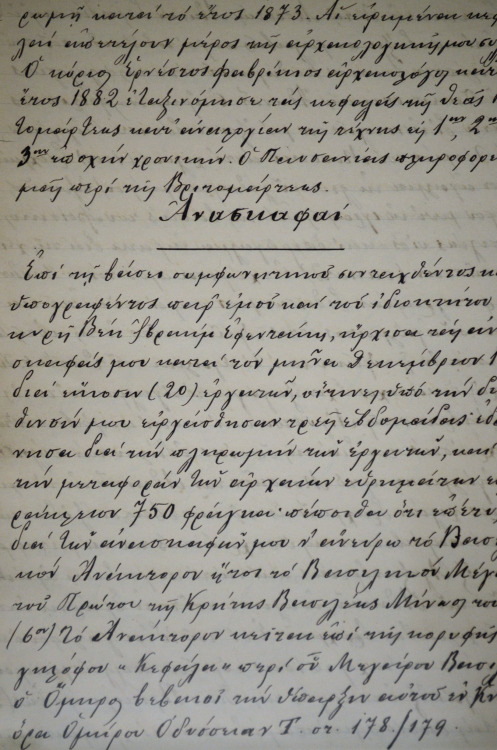 ρωμῇ κατὰ τὸ ἔτος 1873. Αἱ εἰρημέναι κε
λαὶ ἀπετέλουν μέρος τῆς ἀρχαιολογικῆς μου συ
Ὁ κύριος Ἐρνέστος Φαβρίκιος ἀρχαιολόγος κατὰ
ἔτος 1882 ἐταξινόμησε τὰς κεφαλὰς τῆς Θεᾶς
τομάρτεως κατ' ἀναλογίαν τῆς τέχνης εἰς 1ην, 2α
3ην ἐποχὴν χρονικήν. Ὁ Παυσανίας πληροφορε
μᾶς περὶ τῆς Βριτομάρτεως.
Ἀνασκαφαί
Ἐπὶ τῇ βάσει συμφωνητικοῦ συνταχθέντος κα
ὑπογραφέντος παρ' ἐμοῦ καὶ τοῦ ἰδιοκτήτου
κυρῆ Βέη Ἰβραήμ Ἐφεντάκη, ἤρχισα τὰς ἀν
σκαφάς μου κατὰ τὸν μῆνα Δεκέμβριον 1
διὰ εἴκοσιν (20) ἐργατῶν, οἵτινες ὑπὸ τὴν δι
θυνσίν μου εἰργάσθησαν τρεῖς ἑβδομάδας· ἐδ
νησα διὰ τὴν πληρωμὴν τῶν ἐργατῶν, καὶ
τὴν μεταφορὰν τῶν ἀρχαίων εὑρημάτων ε
ράκλειον 750 φράγκα· πέποιθα ὅτι ἐπέτυ
διὰ τῶν ἀνασκαφῶν μου ν' ἀνεύρω τὸ Βασι
κὸν Ἀνάκτορον ἤτοι τὸ Βασιλικὸν Μέγα
τοῦ Πρώτου τῆς Κρήτης Βασιλέως Μίνωος του
(6ον) Τὸ Ἀνάκτορον κεῖται ἐπὶ τῆς κορυφῆς
γηλόφου "Κεφάλα" περὶ οὗ Μεγάρου Βασι
ὁ Ὅμηρος βεβαιοῖ τὴν ὕπαρξιν αὐτοῦ ἐν Κν
ὅρα Ὁμήρου Ὀδύσσειαν Τ. στ. 178./179.